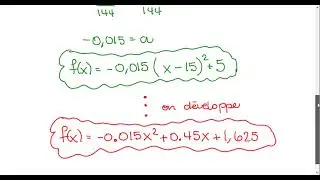 144 144
-0,015 = a
f(x) = -0,015 (x-15)² + 5
⋮ on développe
f(x) = -0.015x² + 0.45x + 1,625